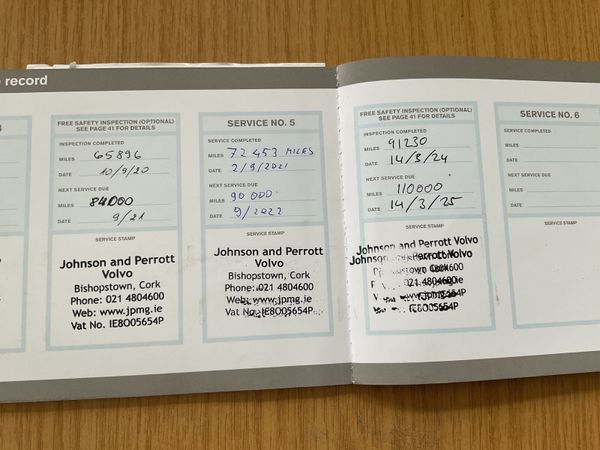 record
FREE SAFETY INSPECTION (OPTIONAL)
SEE PAGE 41 FOR DETAILS
INSPECTION COMPLETED
MILES 65896
DATE 10/9/20
NEXT SERVICE DUE
MILES 84000
DATE 9/21
SERVICE STAMP
Johnson and Perrott
Volvo
Bishopstown, Cork
Phone: 021 4804600
Web: www.jpmg.ie
Vat No. IE8O05654P
SERVICE NO. 5
SERVICE COMPLETED
MILES 72 453 MILES
DATE 2/9/2021
NEXT SERVICE DUE
MILES 90 000
DATE 9/2022
SERVICE STAMP
Johnson and Perrott
Volvo
Bishopstown, Cork
Phone: 021 4804600
Web: www.jpmg.ie
Vat No. IE8O05654P
FREE SAFETY INSPECTION (OPTIONAL)
SEE PAGE 41 FOR DETAILS
INSPECTION COMPLETED
MILES 91230
DATE 14/3/24
NEXT SERVICE DUE
MILES 110000
DATE 14/3/25
SERVICE STAMP
Johnson and Perrott Volvo
Johnson
SERVICE NO. 6
SERVICE COMPLETED
MILES
DATE
NEXT SERVICE DUE
MILES
DATE
SERVICE STAMP